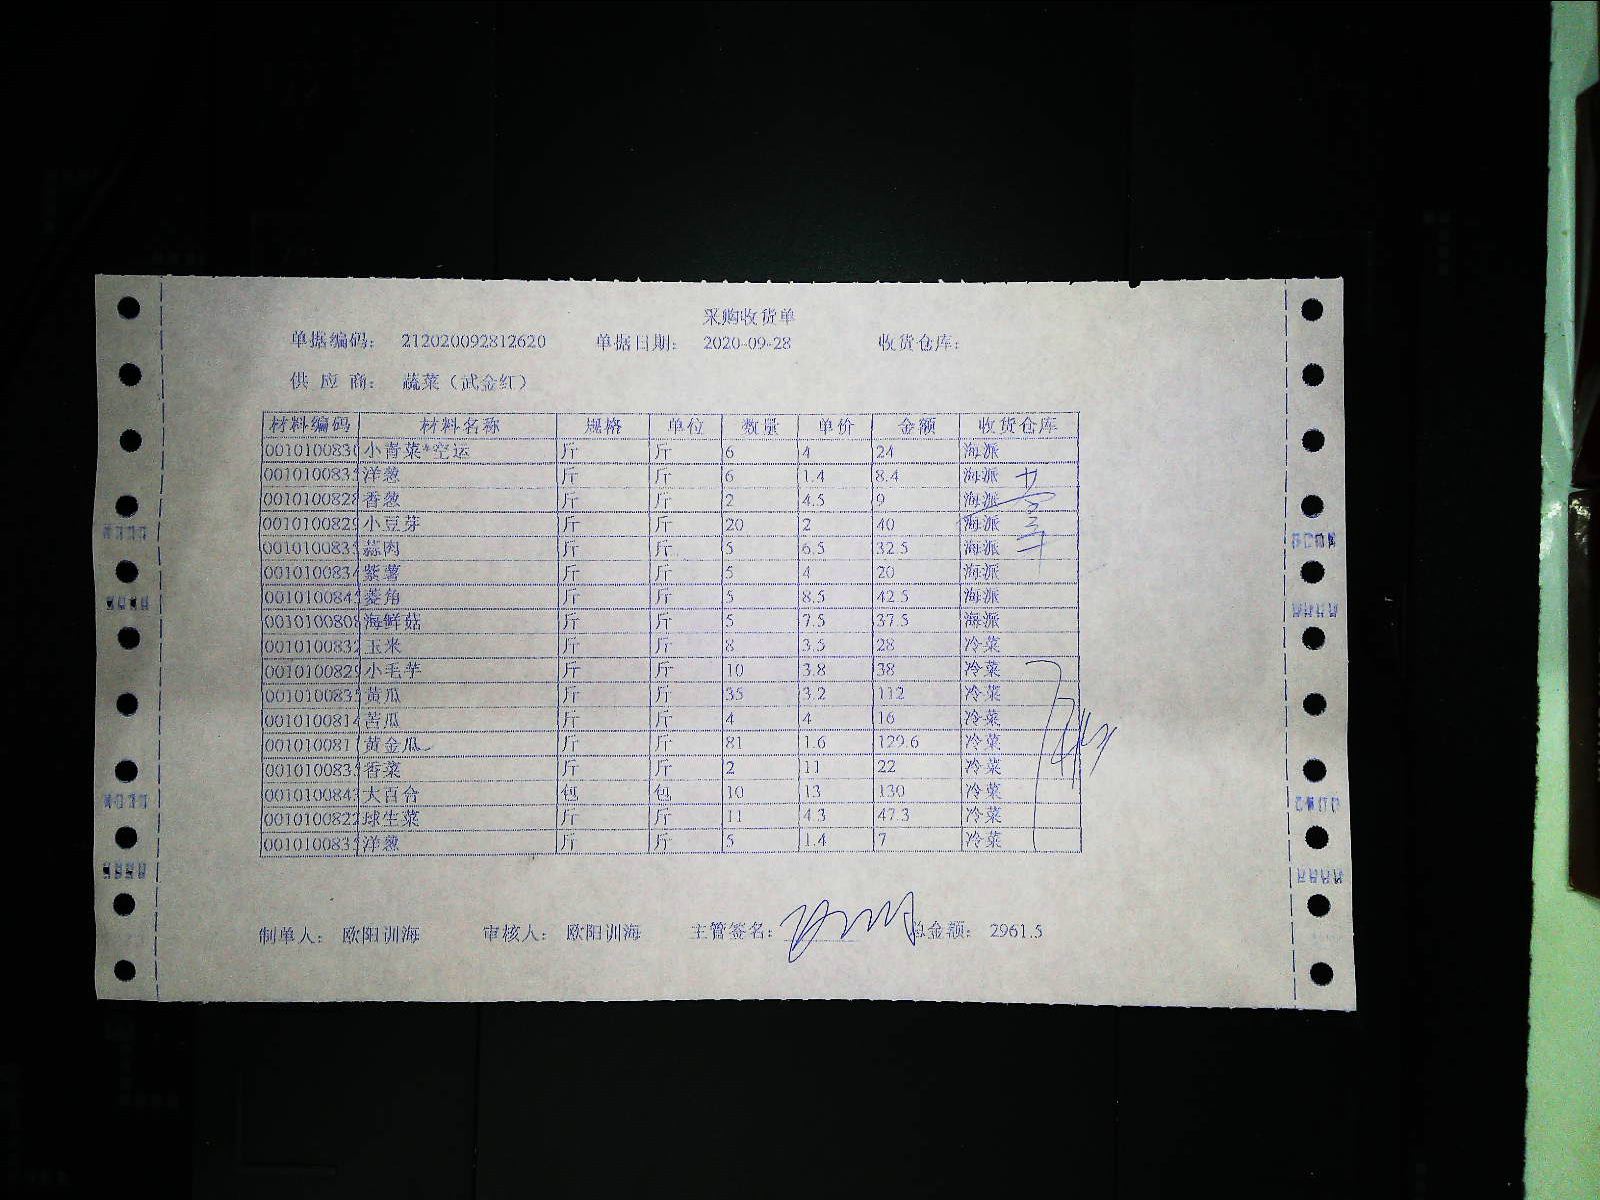 采购收货单
单据编码： 212020092812620 单据日期： 2020-09-28 收货仓库：
供 应 商： 蔬菜（武金红）
材料编码 材料名称 规格 单位 数量 单价 金额 收货仓库
0010100830 小青菜*空运 斤 斤 6 4 24 海派
001010083 洋葱 斤 斤 6 1.4 8.4 海派
0010100828 香葱 斤 斤 2 4.5 9 海派
0010100829 小豆芽 斤 斤 20 2 40 海派
001010083 蒜肉 斤 斤 5 6.5 32.5 海派
0010100834 紫薯 斤 斤 5 4 20 海派
001010084 菱角 斤 斤 5 8.5 42.5 海派
0010100808 海鲜菇 斤 斤 5 7.5 37.5 海派
0010100832 玉米 斤 斤 8 3.5 28 冷菜
0010100829 小毛芋 斤 斤 10 3.8 38 冷菜
001010083 黄瓜 斤 斤 35 3.2 112 冷菜
0010100814 苦瓜 斤 斤 4 4 16 冷菜
001010081 黄金瓜 斤 斤 81 1.6 129.6 冷菜
001010083 香菜 斤 斤 2 11 22 冷菜
001010084 大百合 包 包 10 13 130 冷菜
0010100822 球生菜 斤 斤 11 4.3 47.3 冷菜
001010083 洋葱 斤 斤 5 1.4 7 冷菜
制单人： 欧阳训海 审核人： 欧阳训海 主管签名： 总金额： 2961.5